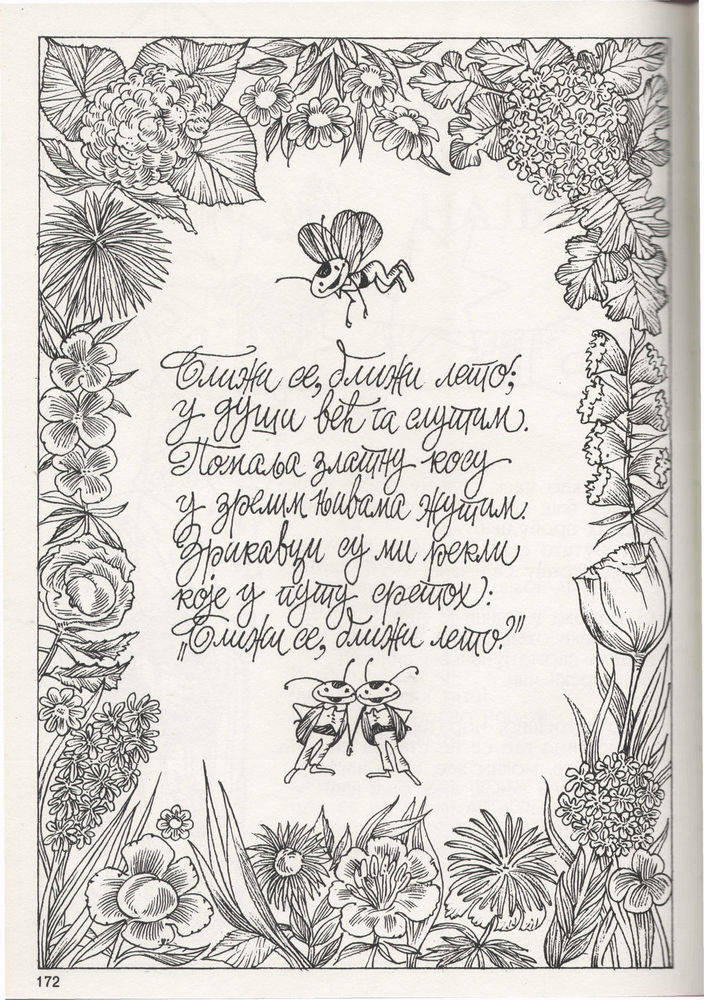 Ближи се, ближи лето;
у души већ га слутим.
Помаља златну косу
у зрелим њивама жутим.
Зрикавци су ми рекли
које у путу сретох:
„Ближи се, ближи лето!"
172